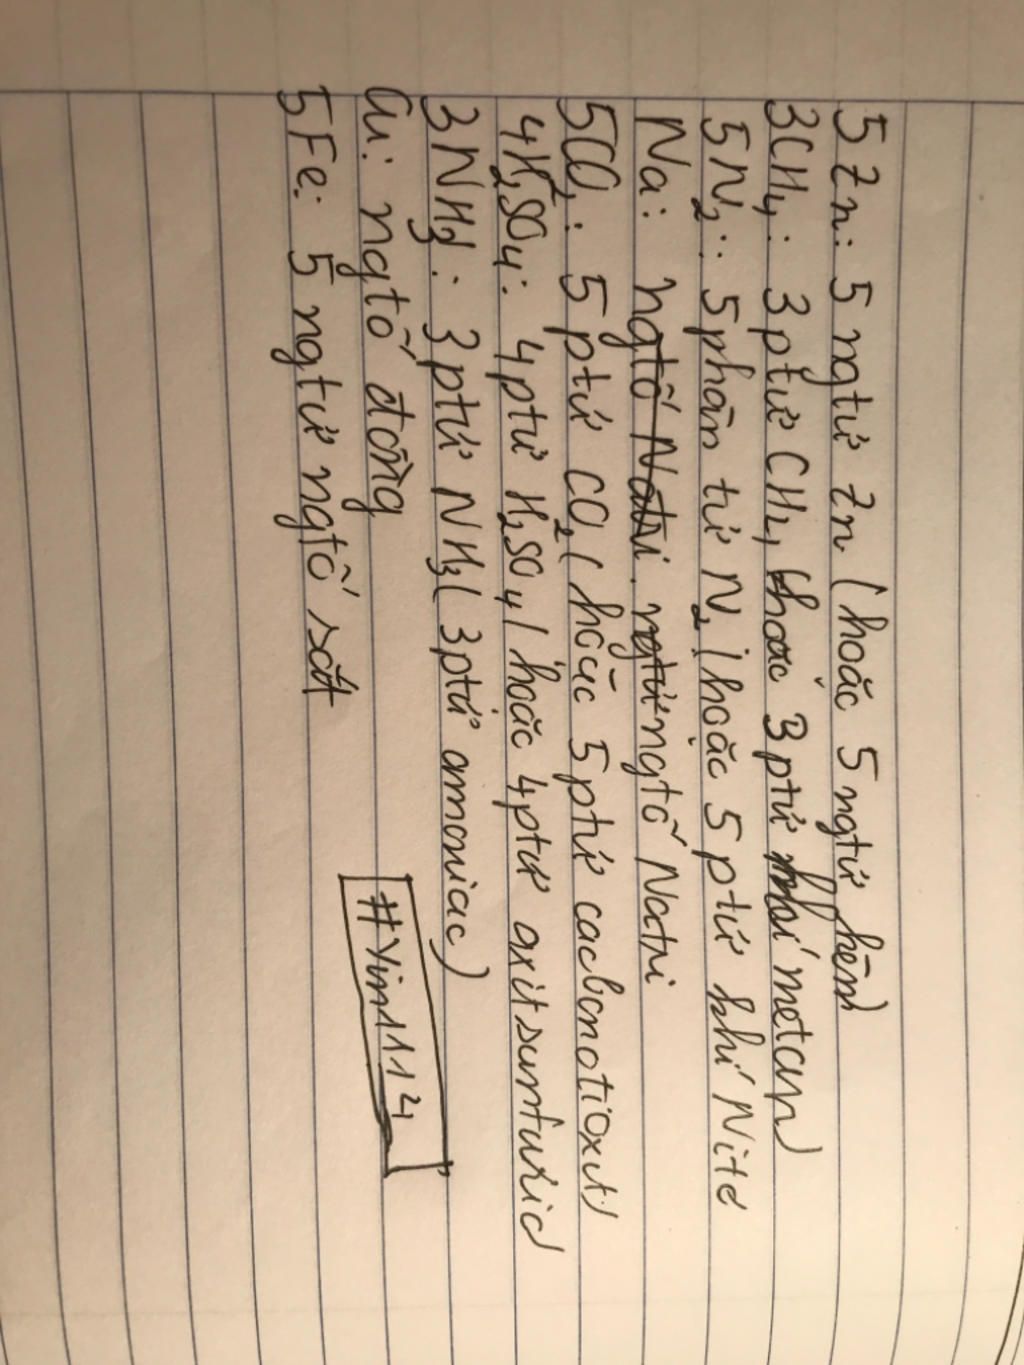 5 Zn: 5 ngtử Zn (hoặc 5 ngtử kẽm)
3CH4: 3 ptử CH4 hoặc 3 ptử khí metan)
5N2: 5 phân tử N2 (hoặc 5 ptử khí Nitơ
Na: ngtố Natri ngtử ngtố Natri
5CO2: 5 ptử CO2 (hoặc 5 ptử cacbonđioxit)
4H2SO4: 4 ptử H2SO4 (hoặc 4 ptử axit sunfuric
3NH3: 3 ptử NH3 (3 ptử amoniac)
Cu: ngtố đồng
5Fe: 5 ngtử ngtố sắt
#Yim1114